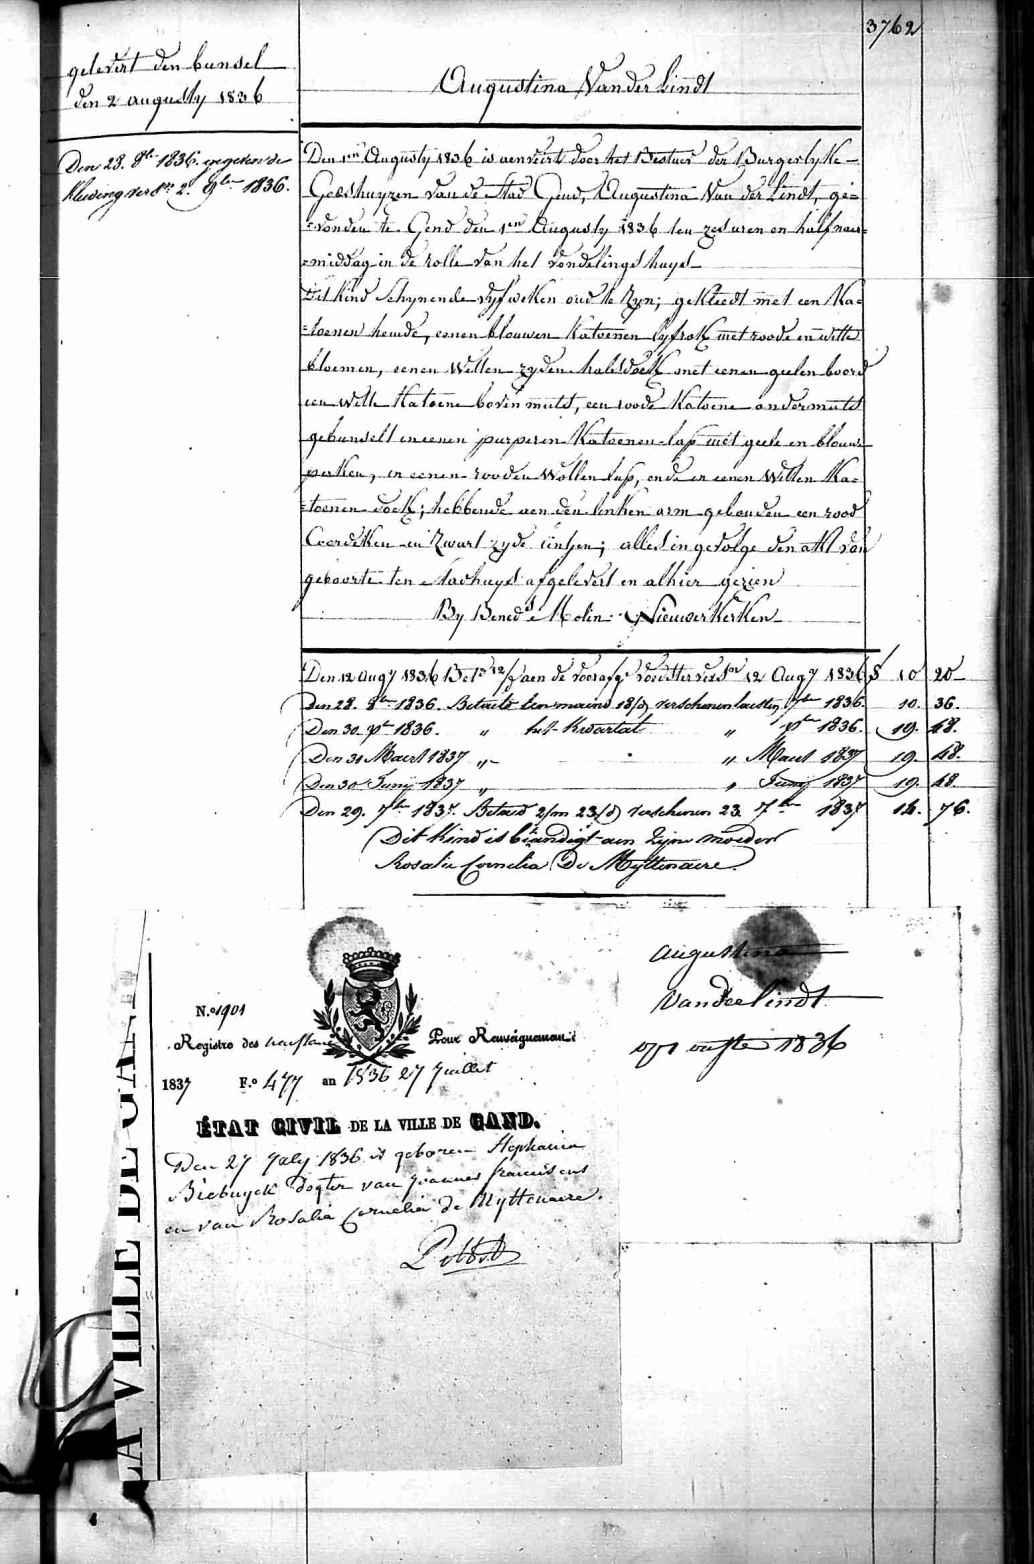 3762
gelevert den bunsel
den 2 augusty 1836
Augustina Vander Lindt
Den 28. 8br 1836. gegeven de
kleeding vers. 2. 9br 1836.
Den 1en Augusty 1836 is aenveirt door het Bestuer der Burgerlyke
Godshuyzen van de Stad Gend, Augustina Van der Lindt, ge=
=vonden te Gend den 1en Augusty 1836 ten zes uren en half naer=
=middag in de rolle van het vondelingshuys
Dit kind schynende vyf weken oud te zyn; gekleedt met een Ka=
=toenen hemde, eenen blouwen Katoenen lyfrok met roode en witte
bloemen, eenen witten zyden halsdoek met eenen geelen boord
een witte Katoene bovenmuts, een roode Katoene ondermuts
gebunselt in eenen purperen Katoenen lap met geele en blouwe
perken, in eenen rooden wollen lap, ende in eenen witten Ka=
=toenen doek; hebbende aen den linken arm gebonden een rood
Coordeken in zwart zyde; alles ingevolge den akt van
geboorte ten Stadhuyse afgelevert en alhier gezien
By Bened. Molin. Nieuwerkerken
Den 12 Augy 1836 aen de voedster vers. 12 Augy 1836 $ 10 20
Den 28. 8br 1836. Betaeld een maend 18/d verschenen laesten 7br 1836. 10. 36.
Den 30. xbr 1836. " het kwartael " xbr 1836. 19. 48.
Den 31 Maert 1837 " " Maert 1837 19. 48.
Den 30 Juny 1837 " " Juny 1837 19. 48.
Den 29. 7br 1837. Betaeld 2/m 23/d verschenen 23. 7br 1837 14. 76.
Dit kind is behandigt aen zijne moeder
Rosalie Cornelia De Myttenaere.
Augustina
Vander Lindt
1836
N.o 1901
Registre des naissances
Pour Renseignement
1837 F.o 477 an 1836 27 juillet
ÉTAT CIVIL DE LA VILLE DE GAND.
Den 27 July 1836 is geboren Stephania
Biebuyck dogter van Joannes franciscus
en van Rosalia Cornelia de Myttenaere.
LA VILLE DE GAND